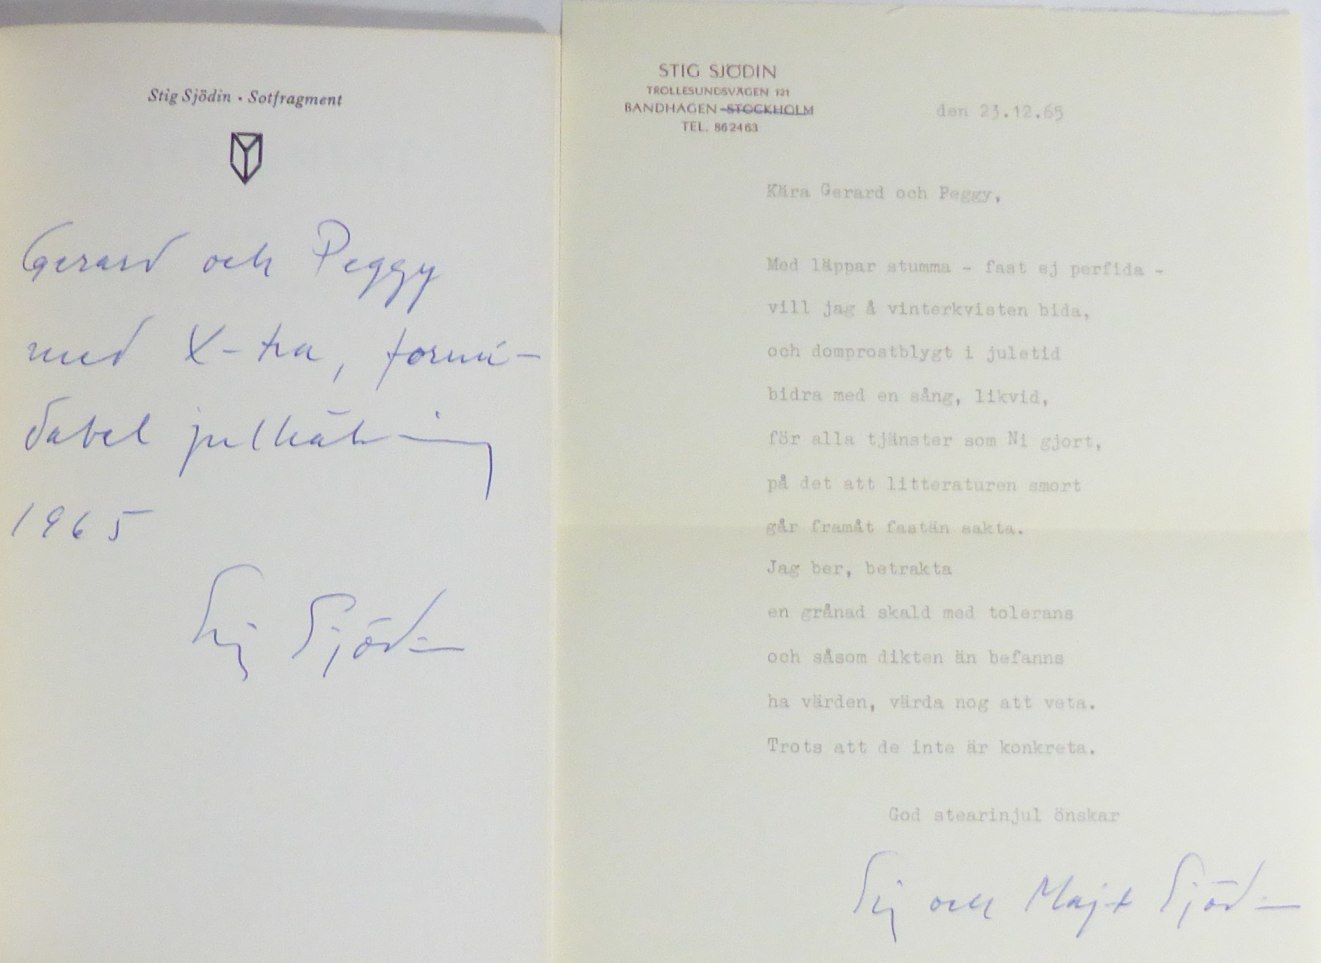 Stig Sjödin · Sotfragment
Gerard och Peggy
med X-tra, formi-
dabel julhälsning
1965
Stig Sjödin
STIG SJÖDIN
TROLLESUNDSVÄGEN 121
BANDHAGEN-STOCKHOLM
TEL. 86 24 63
den 23.12.65
Kära Gerard och Peggy,
Med läppar stumma - fast ej perfida -
vill jag å vinterkvisten bida,
och domprostblygt i juletid
bidra med en sång, likvid,
för alla tjänster som Ni gjort,
på det att litteraturen smort
går framåt fastän sakta.
Jag ber, betrakta
en grånad skald med tolerans
och såsom dikten än befanns
ha värden, värda nog att veta.
Trots att de inte är konkreta.
God stearinjul önskar
Stig och Majt Sjödin